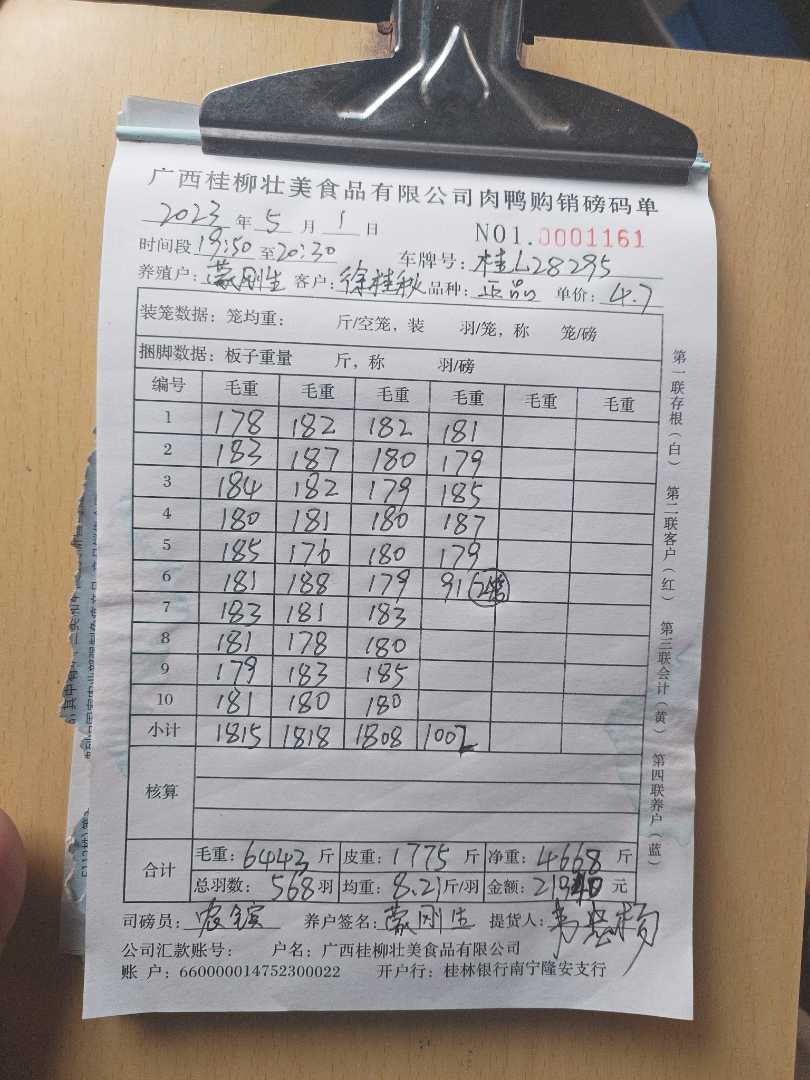 广西桂柳壮美食品有限公司肉鸭购销磅码单
2023年5月1日 NO1.0001161
时间段19:50至20:30 车牌号：桂L28295
养殖户：蒙刚生 客户：徐桂秋 品种：正品 单价：4.7
装笼数据：笼均重： 斤/空笼，装 羽/笼，称 笼/磅
捆脚数据：板子重量 斤，称 羽/磅
编号 毛重 毛重 毛重 毛重 毛重 毛重
1 178 182 182 181
2 183 187 180 179
3 184 182 179 185
4 180 181 180 187
5 185 176 180 179
6 181 188 179 91
7 183 181 183
8 181 178 180
9 179 183 185
10 181 180 180
小计 1815 1818 1808 1002
核算
合计 毛重：6443斤 皮重：1775斤 净重：4668斤
总羽数：568羽 均重：8.21斤/羽 金额： 元
司磅员： 养户签名：蒙刚生 提货人：
公司汇款账号： 户名：广西桂柳壮美食品有限公司
账 户：660000014752300022 开户行：桂林银行南宁隆安支行
第一联存根（白） 第二联客户（红） 第三联会计（黄） 第四联养户（蓝）